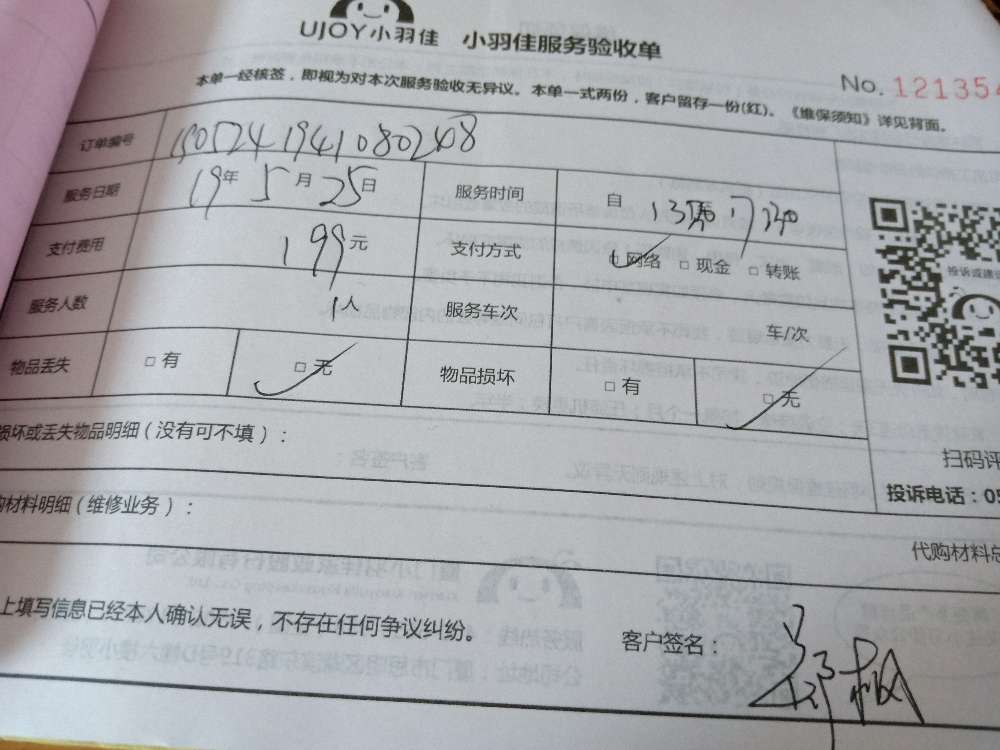 UJOY小羽佳 小羽佳服务验收单
No. 121354
本单一经核签，即视为对本次服务验收无异议。本单一式两份，客户留存一份(红)。《维保须知》详见背面。
订单编号 1905241941080248
服务日期 19年 5月 25日 服务时间 自 13
支付费用 199元 支付方式 网络 □ 现金 □ 转账
投诉或建
服务人数 1人 服务车次 车/次
物品丢失 □ 有 □ 无 物品损坏 □ 有 □ 无
损坏或丢失物品明细（没有可不填）：
扫码评
投诉电话：05
购材料明细（维修业务）：
代购材料总
上填写信息已经本人确认无误，不存在任何争议纠纷。 客户签名：